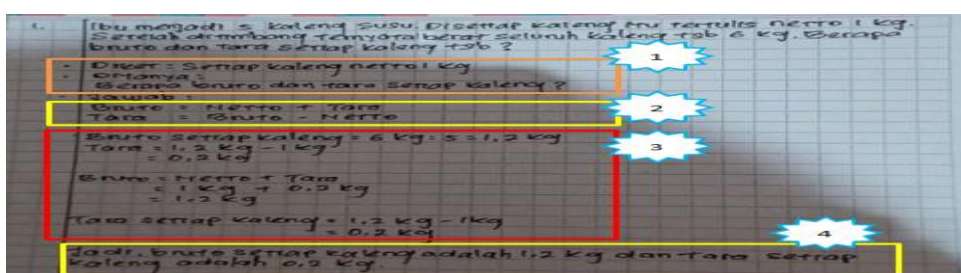 1. Ibu menjadi 5 kaleng susu. Disetiap kaleng itu tertulis netto 1 kg.
Setelah ditimbang ternyata berat seluruh kaleng tsb 6 kg. Berapa
bruto dan tara setiap kaleng tsb?
1
- Diket = Setiap kaleng netto 1 kg
- Ditanya :
Berapa bruto dan tara setiap kaleng?
- Jawab :
2
Bruto = Netto + Tara
Tara = Bruto - Netto
3
Bruto setiap kaleng = 6 kg : 5 = 1,2 kg
Tara = 1,2 kg - 1 kg
= 0,2 kg
Bruto = Netto + Tara
= 1 kg + 0,2 kg
= 1,2 kg
Tara setiap kaleng = 1,2 kg - 1 kg
= 0,2 kg
4
Jadi, bruto setiap kaleng adalah 1,2 kg dan tara setiap
kaleng adalah 0,2 kg.